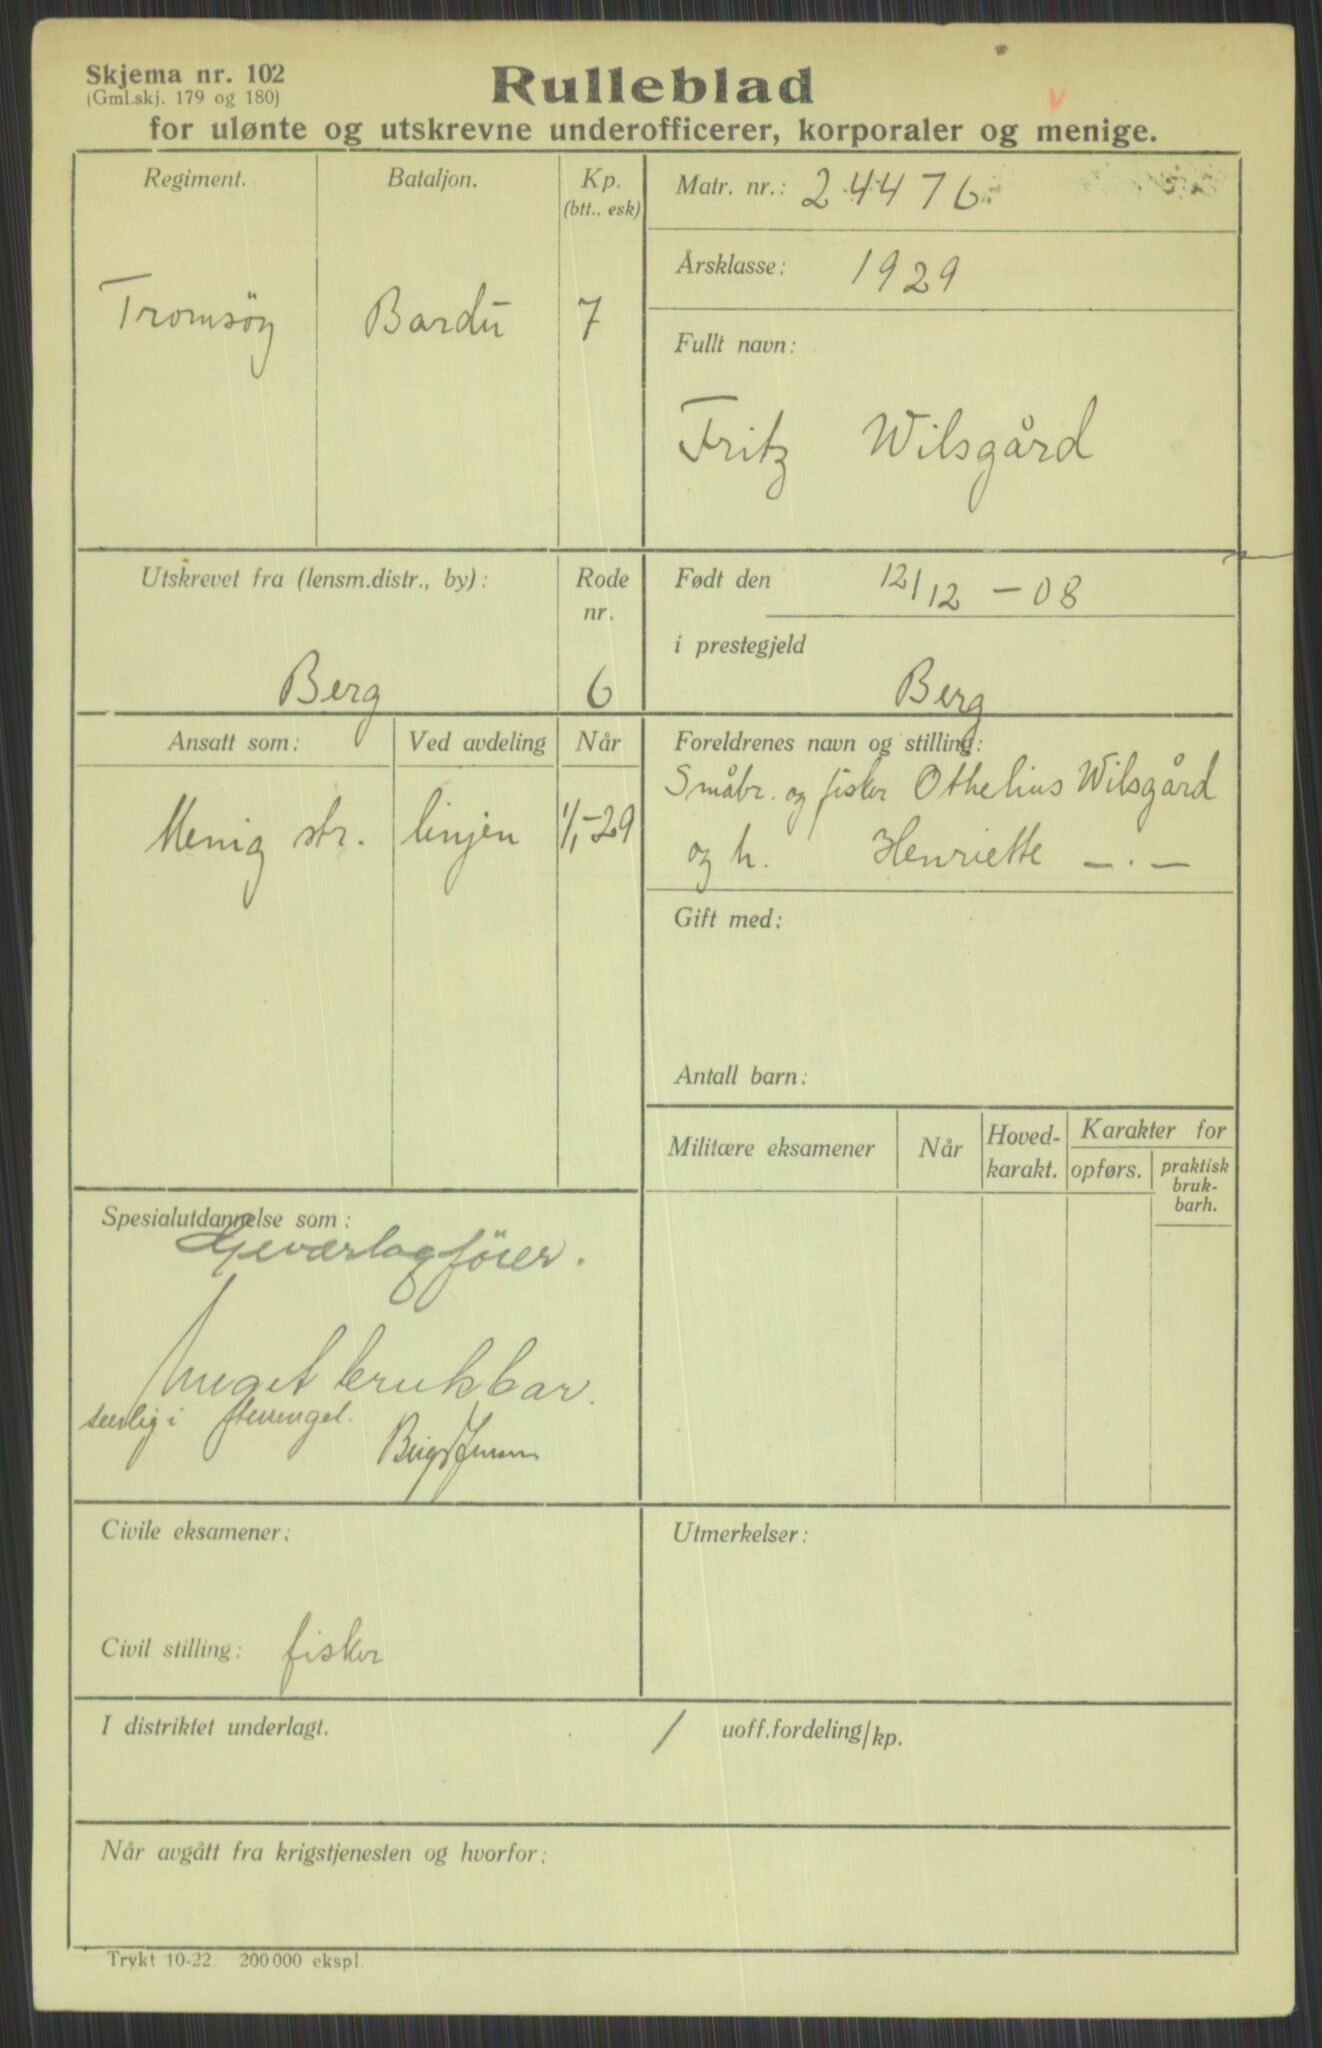 Skjema nr. 102
(Gml.skj. 179 og 180)
Rulleblad
for ulønte og utskrevne underofficerer, korporaler og menige.
Regiment.
Bataljon.
Kp.
(btt., esk)
Tromsöy
Bardu
7
Matr. nr.: 24476
Årsklasse: 1929
Fullt navn:
Fritz Wilsgård
Utskrevet fra (lensm.distr., by):
Berg
Rode
nr.
6
Født den 12/12 - 08
i prestegjeld
Berg
Ansatt som:
Ved avdeling
Når
Menig str.
linjen
1/1-29
Foreldrenes navn og stilling:
Småbr. og fisker Othelius Wilsgård
og h. Henriette — . —
Gift med:
Antall barn:
Militære eksamener
Når
Hoved-
karakt.
Karakter for
opførs.
praktisk
bruk-
barh.
Spesialutdannelse som:
Geværlagförer.
Meget brukbar.
særlig i
Civile eksamener:
Civil stilling: fisker
Utmerkelser:
I distriktet underlagt. / uoff.fordeling/kp.
Når avgått fra krigstjenesten og hvorfor:
Trykt 10-22. 200 000 ekspl.